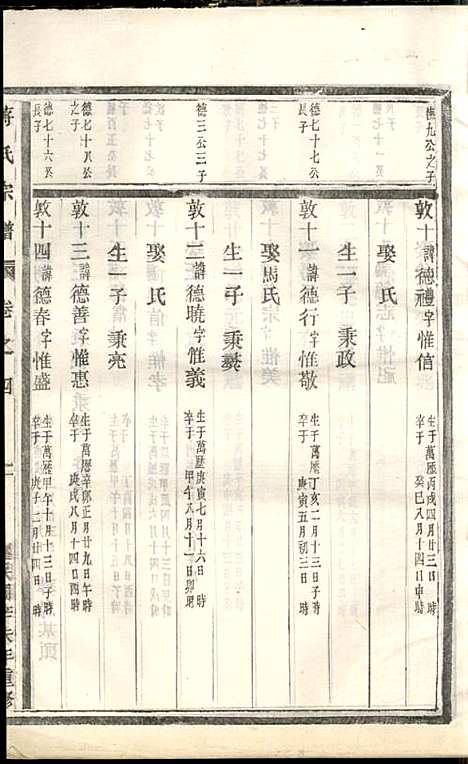 德九公之子
敦十諱德禮字惟信 生于萬歷丙戌四月廿三日 時 卒于 癸巳八月十四日申時
娶 氏
生一子 秉政
德七十七公長子
敦十一諱德行字惟敬 生于萬歷丁亥二月十三日子時 卒于 庚寅五月初三日 時
娶馬氏
生一子 秉彜
德三公三子
敦十二諱德曉字惟義 生于萬歷庚寅七月十六日 時 卒于 甲午八月十一日卯時
娶 氏
生一子 秉亮
德七十八公之子
敦十三諱德善字惟惠 生于萬歷辛卯正月廿九日午時 卒于 庚戌八月十四日酉時
德七十六公長子
敦十四諱德春字惟盛 生于萬歷甲午十月十三日子時 卒于 庚子二月廿四日 時
蔣氏宗譜 卷之四 二
年重修